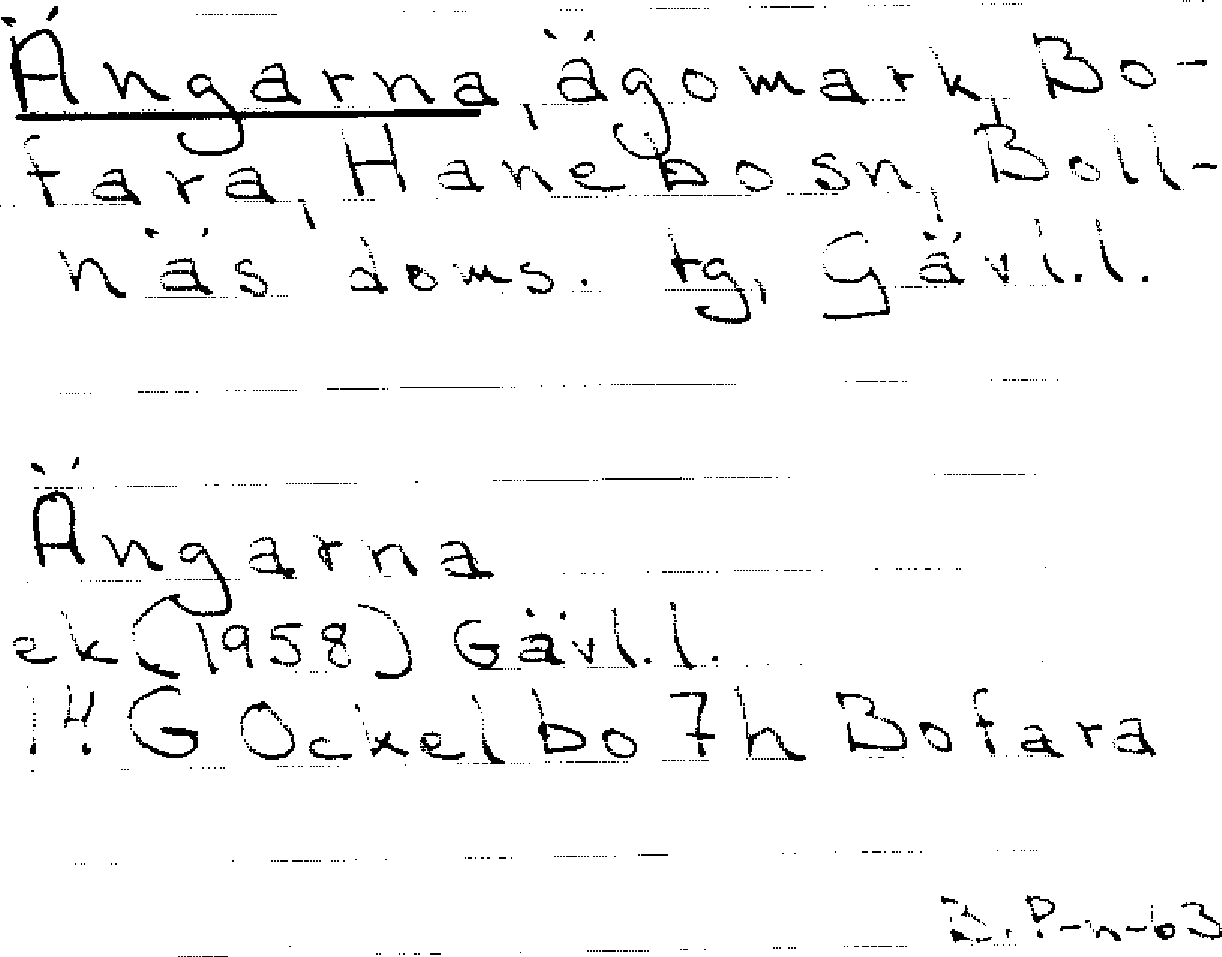 Ängarna, ägomark, Bo-
fara, Hanebo sn, Boll-
näs doms. tg, Gävl.l.
Ängarna
ek (1958) Gävl.l.
14 G Ockelbo 7h Bofara
B.P-n-63